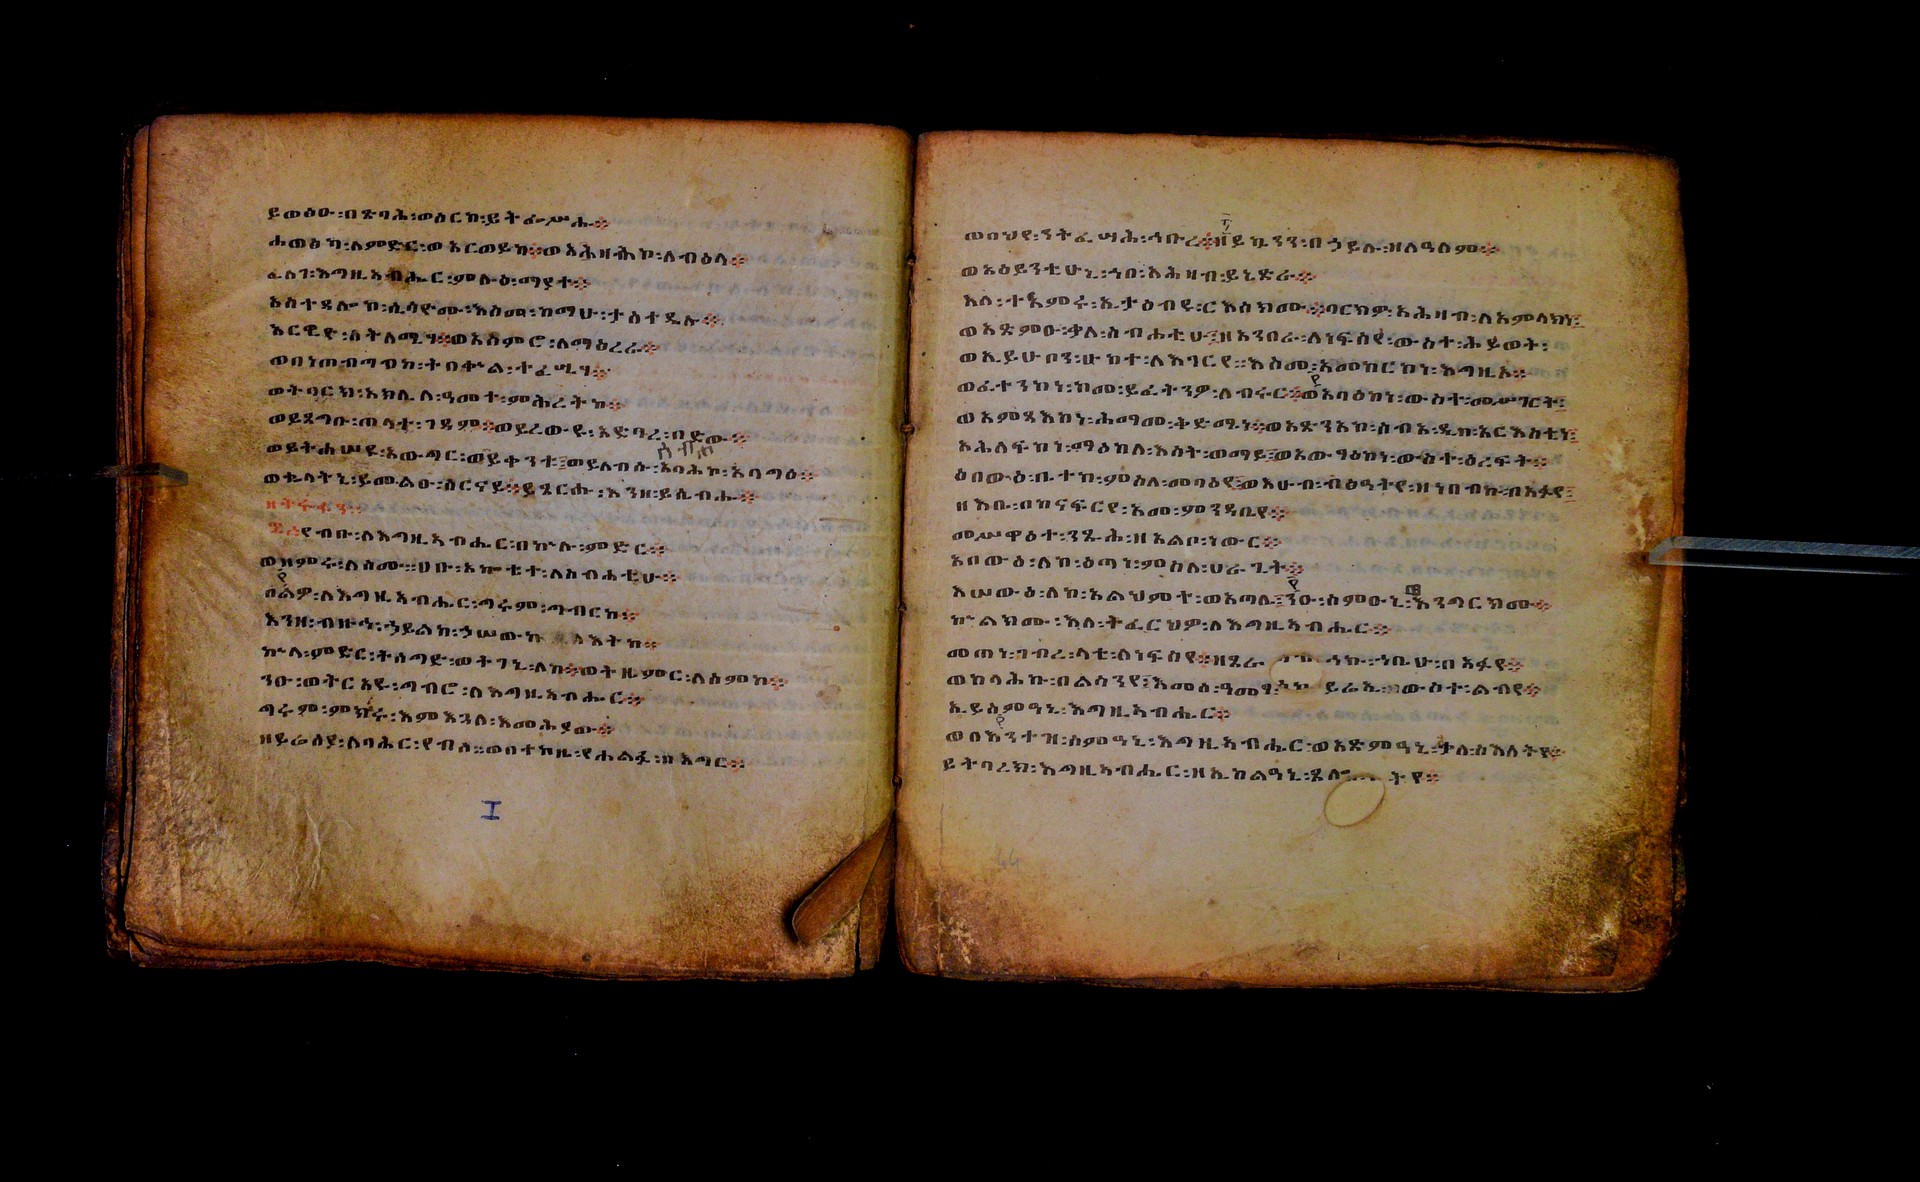 ይወፅዑ፡በጽባሕ፡ወሰርከ፡ይትፌሥሑ፨
ሐወፅካ፡ለምድር፡ወአርወይካ፨ወአሕዛሕኮ፡ለብዕላ፨
ፈለገ፡እግዚአብሔር፡ምሉዕ፡ማያተ፨
አስተዳሎከ፡ሲሳዮሙ፡እስመ፡ከማሁ፡ታስተዴሉ፨
አርዊዮ፡ለትለሚሃ፨ወአስምሮ፡ለማዕረራ፨
ወበነጠብጣብከ፡ትበቍል፡ተፈሢሃ፨
ወትባርክ፡አክሊለ፡ዓመተ፡ምሕረትከ፨
ወይጸግቡ፡ጠላተ፡ገዳም፨ወይረውዩ፡አድባረ፡በድው፨
ወይትሐሠዩ፡አውግር፡ወይቀንቱ፤መይለብሱ፡አባግዕ፨
ወቈላትኒ፡ይመልዑ፡ስርናየ፨ይጼርሑ፡እንዘ፡ይሴብሑ፨
የብቡ፡ለእግዚአብሔር፡በኵሉ፡ምድር፨
ወዘምሩ፡ለስሙ፡፡ሀቡ፡አኰቴተ፡ለስብሐቲሁ፨
በልዎ፡ለእግዚአብሔር፡ግሩም፡ግብርከ፨
እንዘ፡ብዙኅ፡ኃይልከ፡ኃሠውከ
ኵላ፡ምድር፡ትሰግድ፡ወትገኒ፡ለከ፨ወትዜምር፡ለስምከ፨
ንዑ፡ወትርአዩ፡ግብሮ፡ለእግዚአብሔር፨
ግሩም፡ምክሩ፡እምእጓለ፡እመሕያው፨
ዘይሬስያ፡ለባሕር፡የብሰ፡፡ወበተከዜ፡የሐልፉ፡በእግር፨
I
ወበህየ፡ንትፌሣሕ፡ኅቡረ፨ዘይኴንን፡በኃይሉ፡ዘለዓለም፨
ወአዕይንቲሁኒ፡ኀበ፡አሕዛብ፡ይኔጽራ፨
እለ፡ተአምሩ፡ኢታዕብዩ፡ርእሰክሙ፨ባርክዎ፡አሕዛብ፡ለአምላክነ፤
ወአጽምዑ፡ቃለ፡ስብሐቲሁ፤ዘአንበራ፡ለነፍስየ፡ውስተ፡ሕይወት፡
ወኢይሁቦን፡ሁከተ፡ለእገርየ፡፡እስመ፡አመከርከነ፡እግዚኦ፨
ወፈተንከነ፡ከመ፡ይፈትንዎ፡ለብሩር፨ወአባዕከነ፡ውስተ፡መሥገርት፤
ወአምጻእከነ፡ሕማመ፡ቅድሜነ፨
አሕለፍከነ፡ማዕከለ፡እሳት፡ወማይ፤ወአውፃዕከነ፡ውስተ፡ዕረፍት፨
እበውዕ፡ቤተከ፡ምስለ፡መባዕየ፤ወእሁብ፡ብፅዓትየ፡ዘነበብኩ፡በአፉየ፤
ዘእቤ፡በከናፍርየ፡አመ፡ምንዳቤየ፨
መሥዋዕተ፡ንጹሕ፡ዘአልቦ፡ነውር፨
አበውዕ፡ለከ፡ዕጣነ፡ምስለ፡ሀራጊት፨
እሠውዕ፡ለከ፡አልህምተ፡ወአጣሊ፤ንዑ፡ስምዑኒ፡እንግርክሙ፨
ኵልክሙ፡እለ፡ትፈርህዎ፡ለእግዚአብሔር፨
መጠነ፡ገብረ፡ላቲ፡ለነፍስየ፨ዘጸራ ኅኩ፡ኀቤሁ፡በአፉየ፨
ወከላሕኩ፡በልሳንየ፤እመሰ፡ዓመፃ ይሬኢ፡ውስተ፡ልብየ፨
ኢይስምዓኒ፡እግዚአብሔር፨
ወበእንተዝ፡ስምዓኒ፡እግዚአብሔር፡ወአጽምዓኒ፡ቃለ፡ስእለትየ፨
ይትባረክ፡እግዚአብሔር፡ዘኢከልዓኒ፡ጸሎ ትየ፨
44